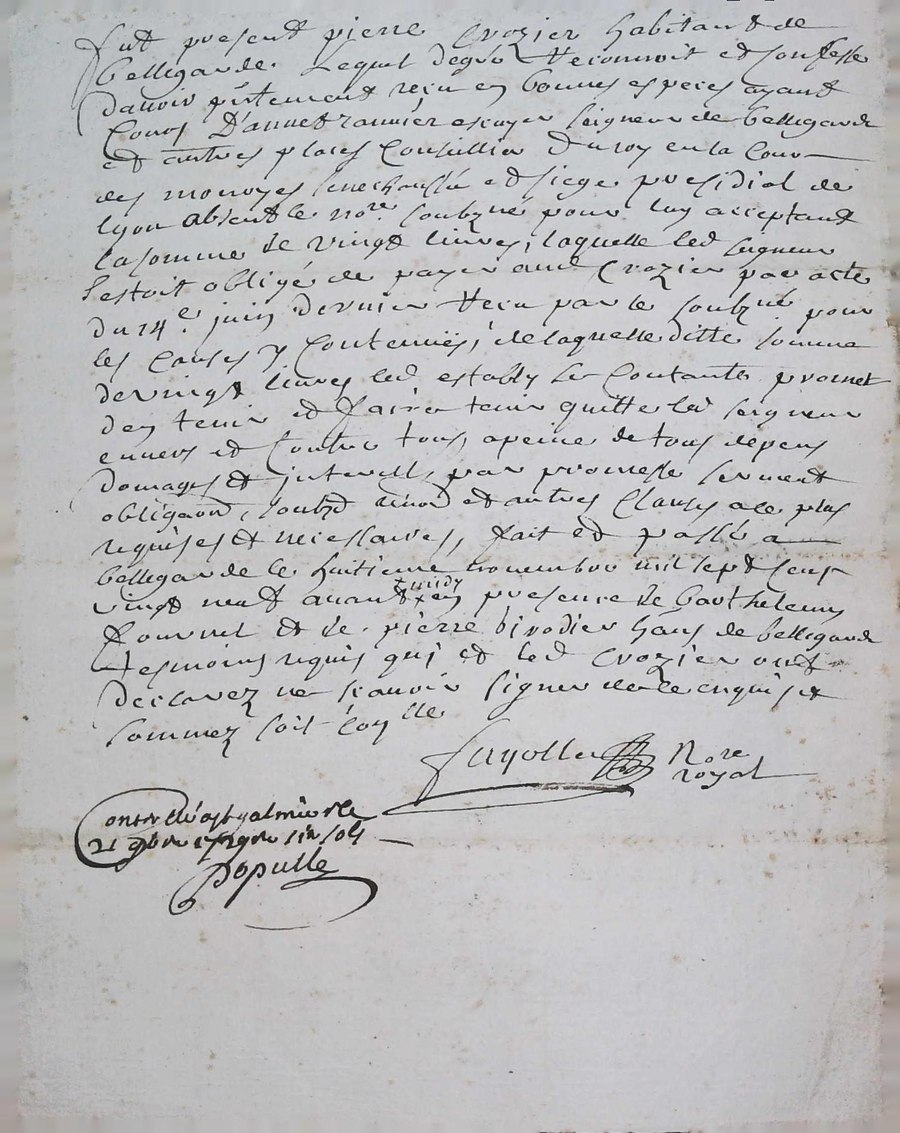 fut present pierre Crozier habitant de
bellegarde Lequel degré Reconnoit et confesse
davoir pntement reçu en bonnes especes ayant
Cours D'annet ranvier escuyer seigneur de bellegarde
et autres places Conseillier du roy en la Cour
des monoyes senechaussée et siege presidial de
lyon absent le nore soubzné pour luy acceptant
la somme de vingt livres, laquelle led seigneur
sestoit obligé de payer aud Crozier par acte
du 14e juin dernier Receu par le soubzné pour
les Causes y Contenües, de laquelle ditte somme
de vingt livres led estably se Contante promet
den tenir et faire tenir quitte led seigneur
envers et Contre tous, apeine de tous depens
domages et interests, par promesse serment
obligaon, soubzd renon et autres Clauses a ce plus
requises et necessaires, fait et passé a
bellegarde le huitieme novembre mil sept cent
vingt neuf avant midy en presence de barthelemy
fournel et de pierre birodier habs de bellegarde
tesmoins requis qui et led Crozier ont
declarez ne scavoir signer de ce enquis et
sommez soit Con lle
fayolle Nore
royal
Controllé a st galmier le
21 9bre 1729 re six sols
Populle